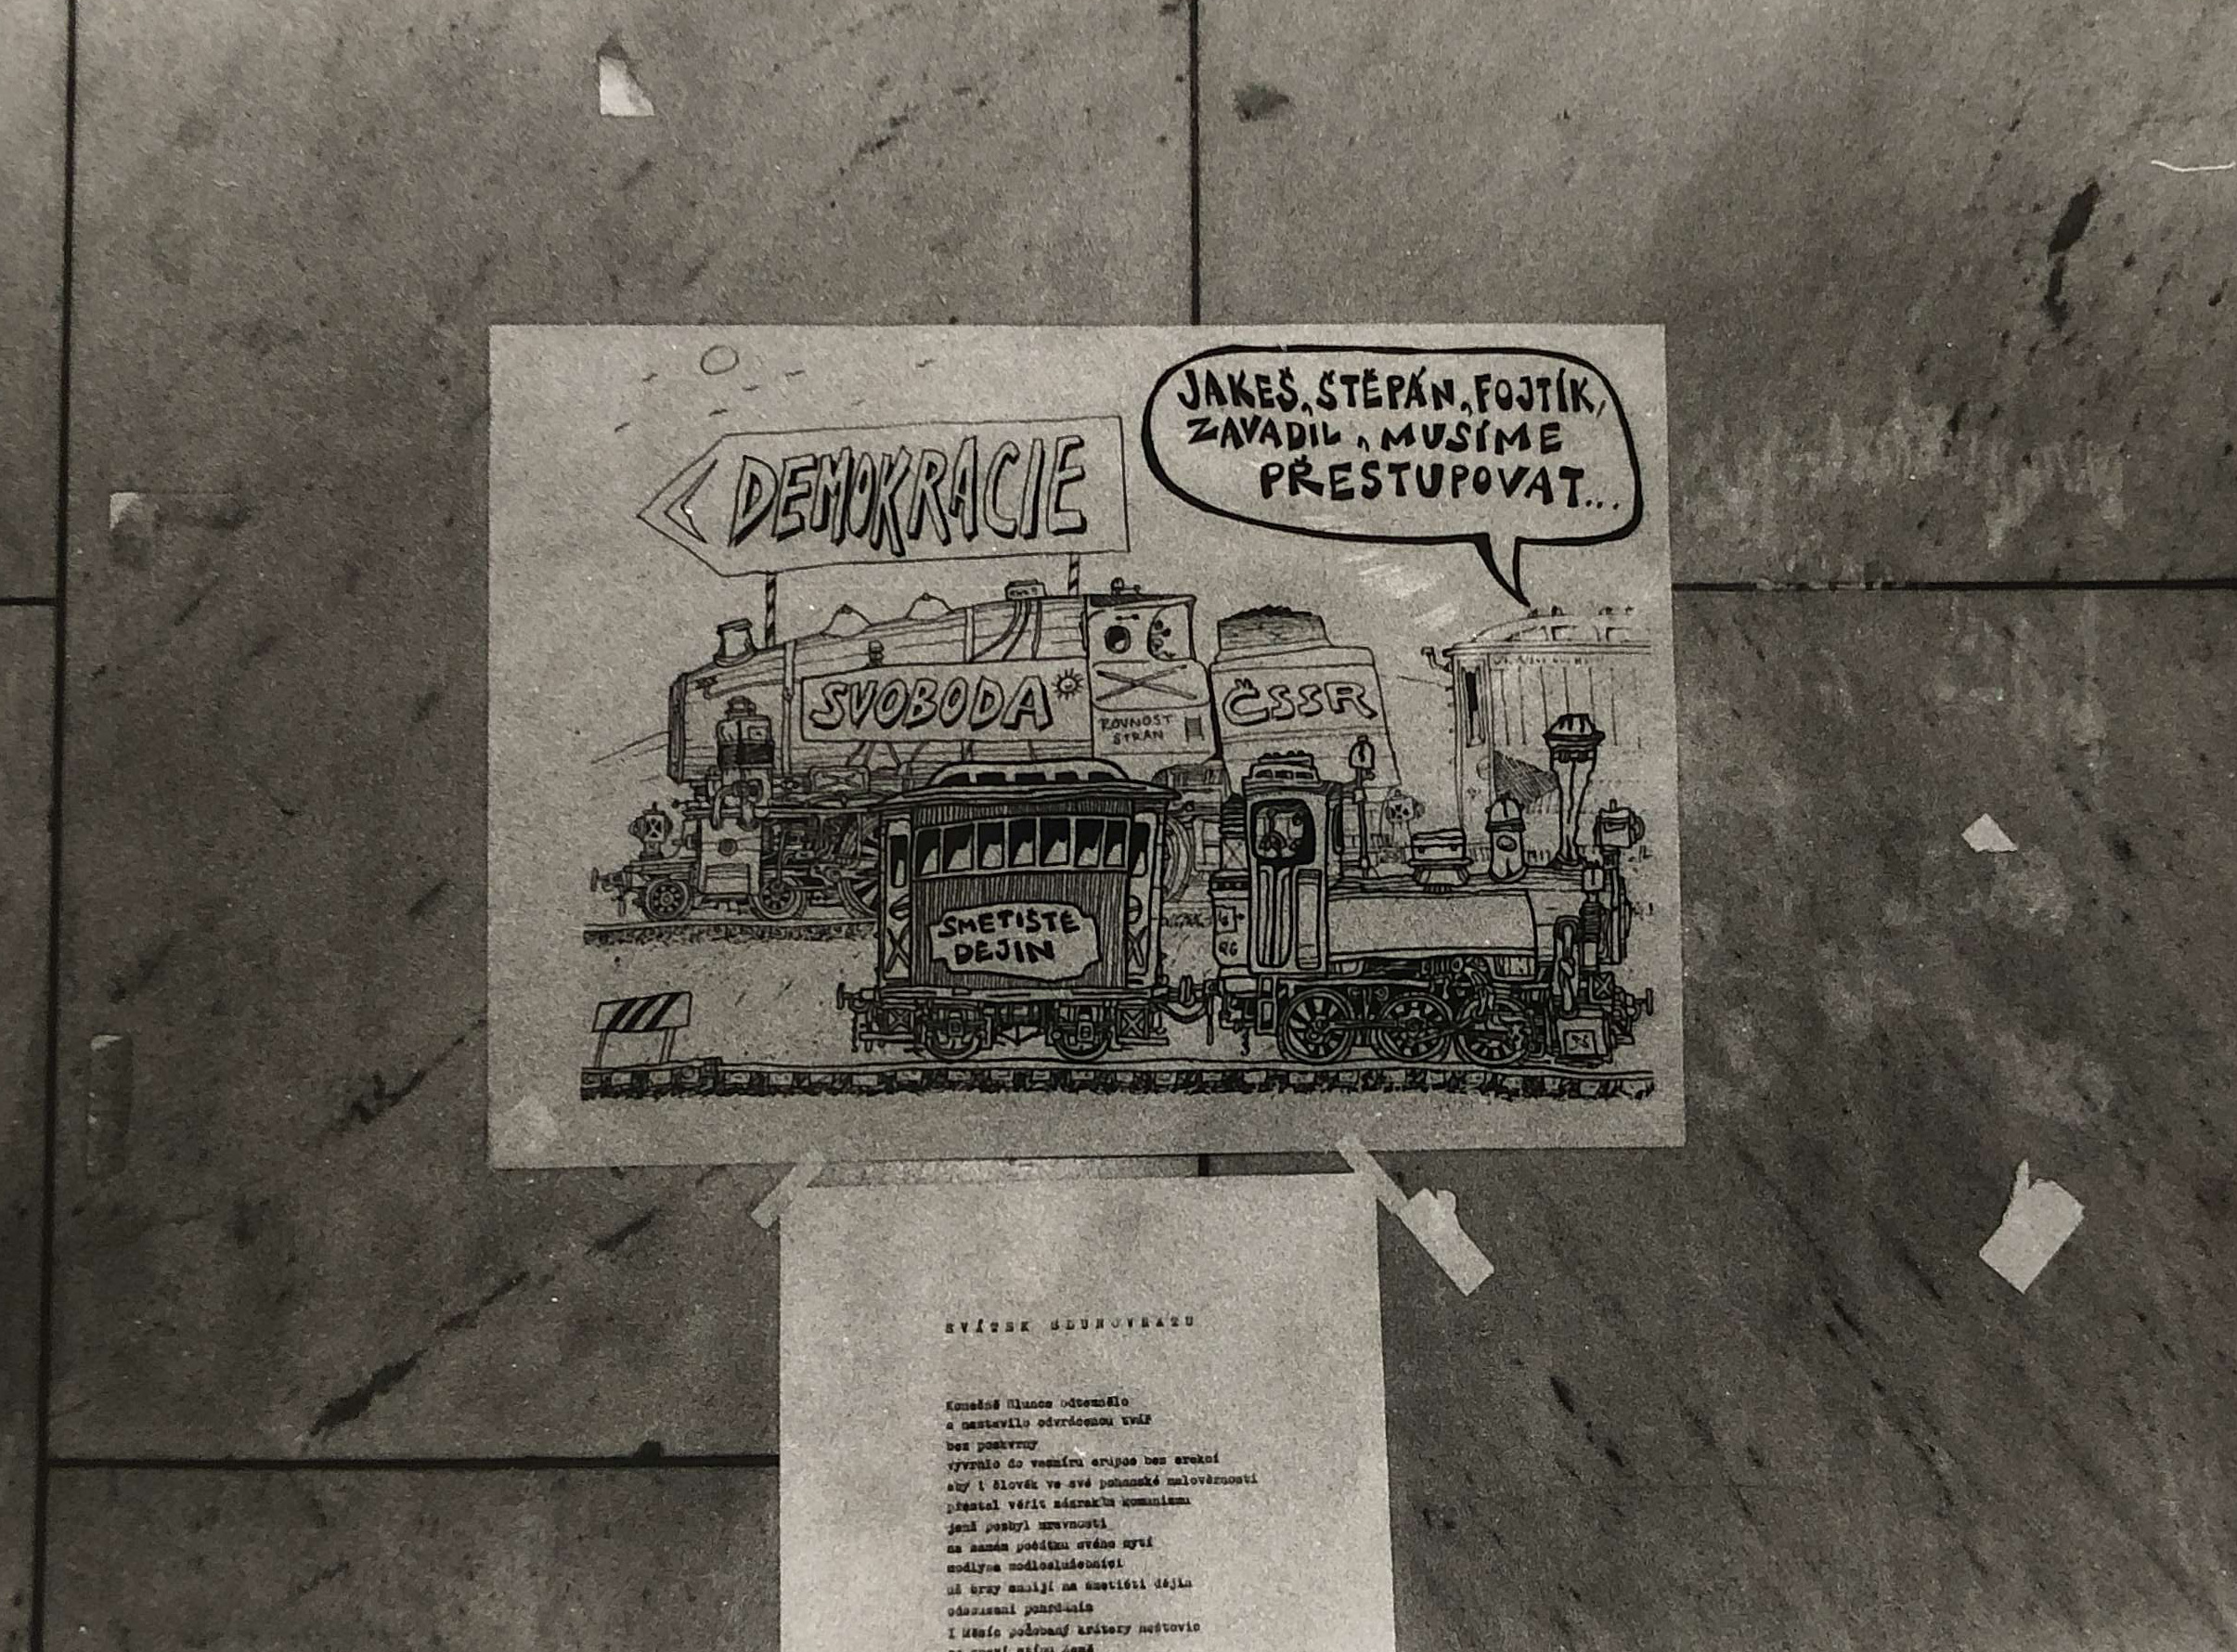 JAKEŠ, ŠTĚPÁN, FOJTÍK,
ZAVADIL, MUSÍME
PŘESTUPOVAT...
DEMOKRACIE
SVOBODA
ROVNOST
STRAN
ČSSR
SMETIŠTĚ
DĚJIN
SVÁTEK SLUNOVRATU
Konečně Slunce odtemnělo
a nastavilo odvrácenou tvář
bez poskvrny
vyvrhlo do vesmíru erupce bez erekcí
aby i člověk ve své pohanské malověrnosti
přestal věřit zázrakům komunismu
jenž pozbyl mravnosti
na samém počátku svého bytí
modly a modloslužebníci
už brzy shnijí na smetišti dějin
odsouzeni
I Měsíc podobaný krátery neštovic